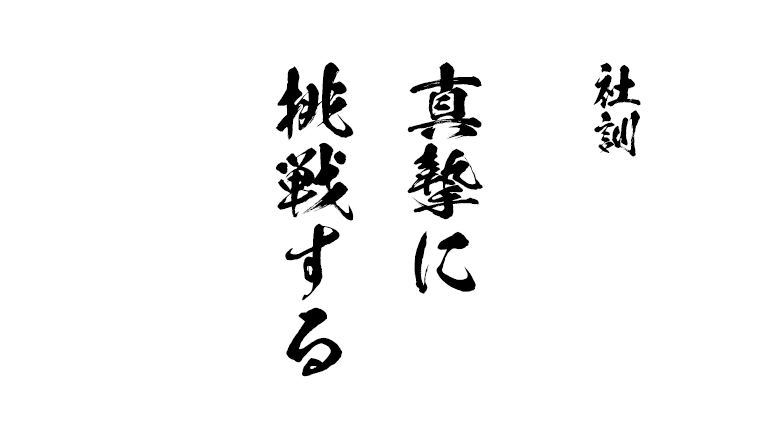 社訓
真摯に
挑戦する